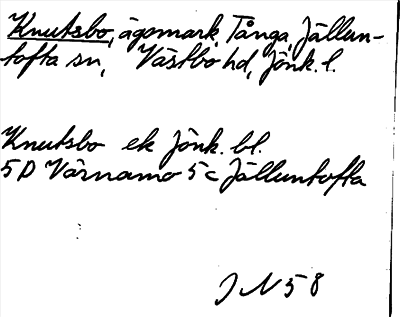 Knutsbo, ägomark, Tånga, Jällun-
tofta sn, Västbo hd, Jönk. l.
Knutsbo ek Jönk. bl.
5D Värnamo 5c Jälluntofta
J N 58